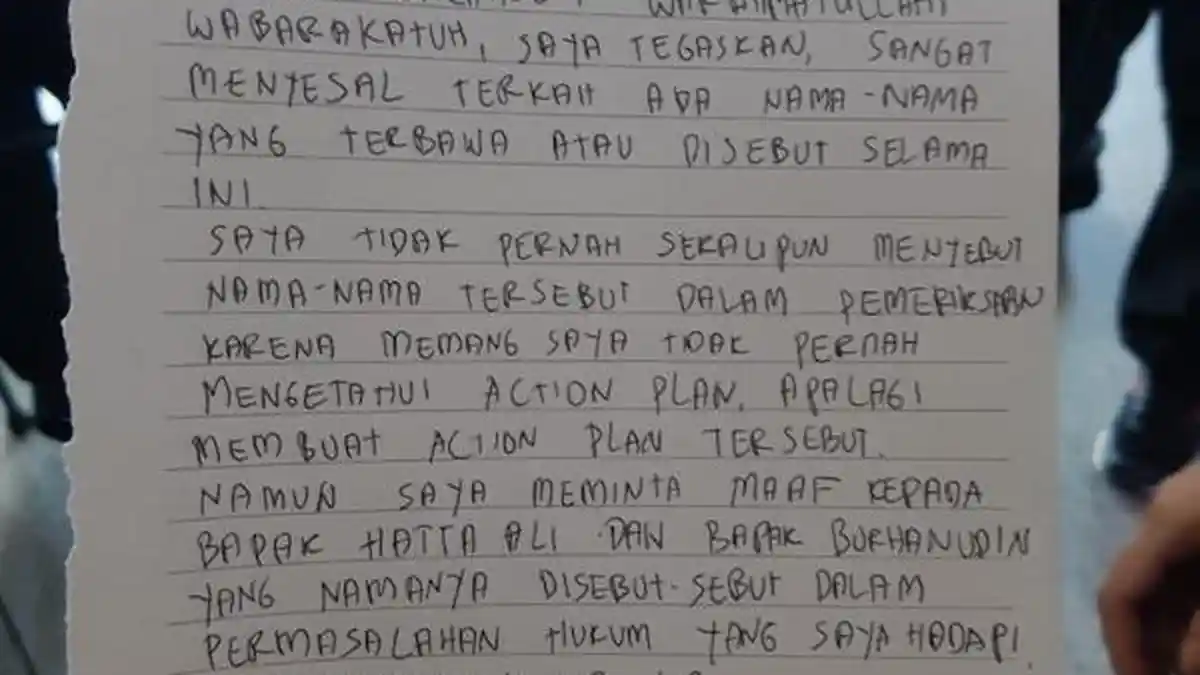 WARAHMATULLAHI
WABARAKATUH, SAYA TEGASKAN, SANGAT
MENYESAL TERKAH ADA NAMA-NAMA
YANG TERBAWA ATAU DISEBUT SELAMA
INI.
SAYA TIDAK PERNAH SEKALIPUN MENYEBUT
NAMA-NAMA TERSEBUT DALAM PEMERIKSAAN
KARENA MEMANG SAYA TIDAK PERNAH
MENGETAHUI ACTION PLAN. APALAGI
MEMBUAT ACTION PLAN TERSEBUT.
NAMUN SAYA MEMINTA MAAF KEPADA
BAPAK HATTA ALI DAN BAPAK BURHANUDIN
YANG NAMANYA DISEBUT-SEBUT DALAM
PERMASALAHAN HUKUM YANG SAYA HADAPI.